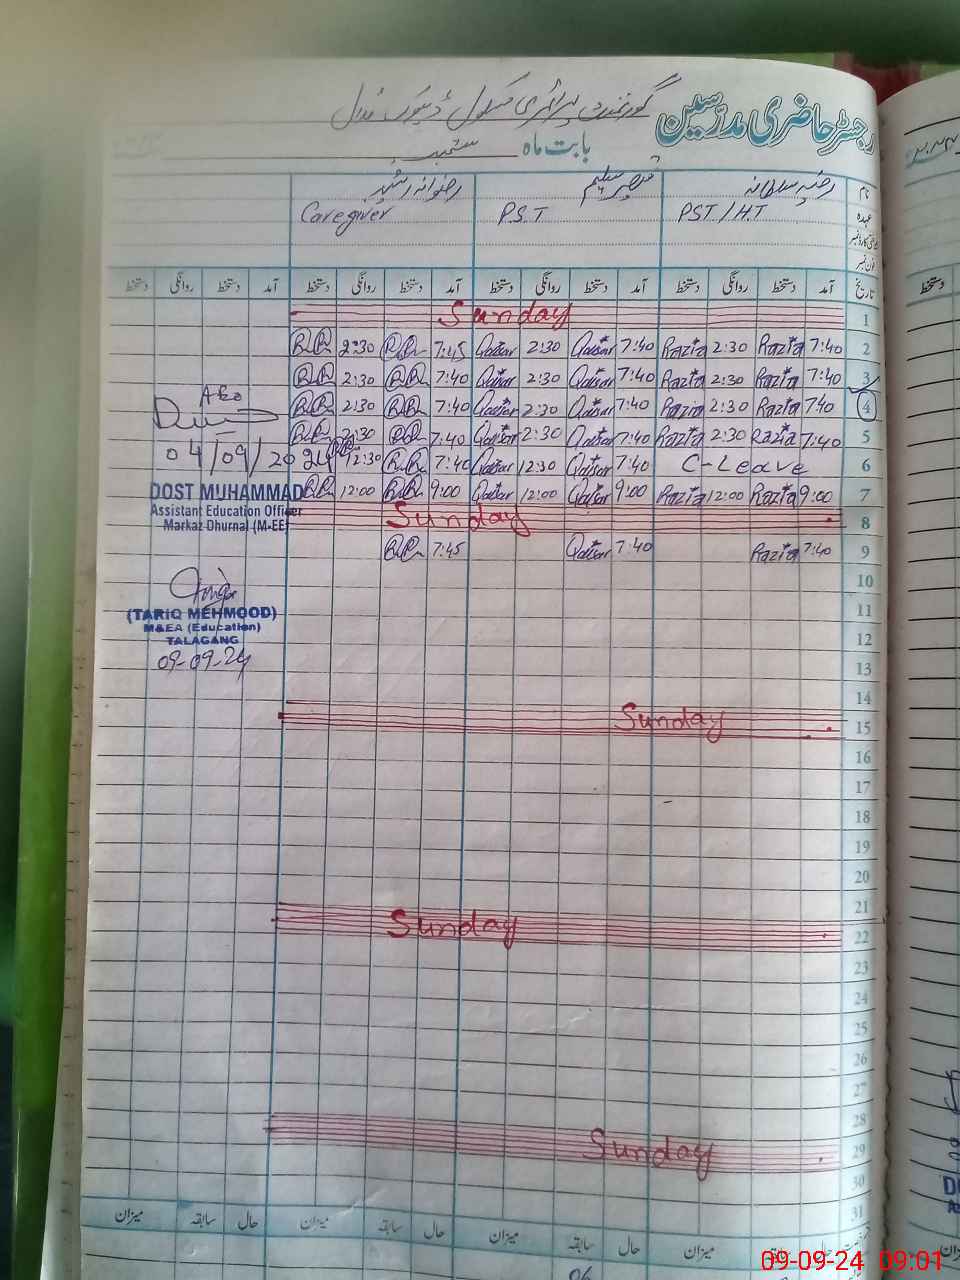 رجسٹر حاضری مدرسین گورنمنٹ پرائمری سکول
بابت ماہ ستمبر
نام رضیہ سلطانہ قیصر سلیم رضوانہ رشید
عہدہ PST/HT P.S.T Caregiver
فون نمبر
تاریخ آمد دستخط روانگی دستخط آمد دستخط روانگی دستخط آمد دستخط روانگی دستخط آمد دستخط روانگی دستخط
Sunday 1
RR 2:30 RR 7:45 Qaisar 2:30 Qaisar 7:40 Razia 2:30 Razia 7:40 2
RR 2:30 RR 7:40 Qaisar 2:30 Qaisar 7:40 Razia 2:30 Razia 7:40 3
RR 2:30 RR 7:40 Qaisar 2:30 Qaisar 7:40 Razia 2:30 Razia 7:40 4
RR 2:30 RR 7:40 Qaisar 2:30 Qaisar 7:40 Razia 2:30 Razia 7:40 5
RR 12:30 RR 7:40 Qaisar 12:30 Qaisar 7:40 C-Leave 6
RR 12:00 RR 9:00 Qaisar 12:00 Qaisar 9:00 Razia 12:00 Razia 9:00 7
Sunday 8
RR 7:45 Qaisar 7:40 Razia 7:40 9
10
11
12
13
14
Sunday 15
16
17
18
19
20
21
Sunday 22
23
24
25
26
27
28
Sunday 29
30
31
حال سابقہ میزان حال سابقہ میزان حال سابقہ میزان حال سابقہ میزان
06
04/09/2024
DOST MUHAMMAD
Assistant Education Officer
Markaz Dhurnal (M-EE)
(TARIQ MEHMOOD)
M&EA (Education)
TALAGANG
09-09-24
دستخط
09-09-24 09:01